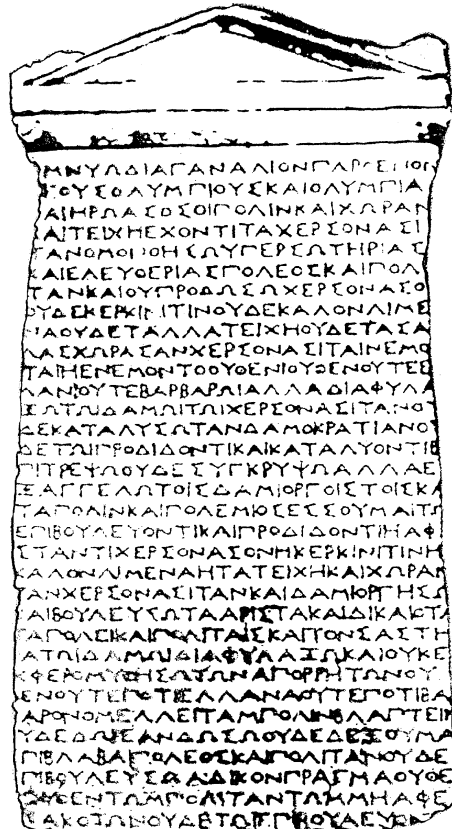 ΜΝΥΩΔΙΑΓΑΝΑΛΙΟΝΠΑΡΘΕΝΟΝ
ΕΟΥΣΟΛΥΜΠΙΟΥΣΚΑΙΟΛΥΜΠΙΑ
ΚΑΙΗΡΩΑΣΟΣΟΙΠΟΛΙΝΚΑΙΧΩΡΑΝ
ΚΑΙΤΕΙΧΗΕΧΟΝΤΙΤΑΧΕΡΣΟΝΑΣΙ
ΤΑΝΟΜΟΝΟΗΣΩΥΠΕΡΣΩΤΗΡΙΑΣ
ΚΑΙΕΛΕΥΘΕΡΙΑΣΠΟΛΕΟΣΚΑΙΠΟΛ
ΤΑΝΚΑΙΟΥΠΡΟΔΩΣΩΧΕΡΣΟΝΑΣΟ
ΟΥΔΕΚΕΡΚΙΝΙΤΙΝΟΥΔΕΚΑΛΟΝΛΙΜΕ
ΝΑΟΥΔΕΤΑΛΛΑΤΕΙΧΗΟΥΔΕΤΑΣΑ
ΛΑΣΧΩΡΑΣΑΝΧΕΡΣΟΝΑΣΙΤΑΙΝΕΜΟ
ΤΑΙΗΕΝΕΜΟΝΤΟΟΥΘΕΝΙΟΥΘΕΝΟΥΤΕΕ
ΛΑΝΙΟΥΤΕΒΑΡΒΑΡΩΙΑΛΛΑΔΙΑΦΥΛΑ
ΞΩΤΩΙΔΑΜΩΙΤΩΙΧΕΡΣΟΝΑΣΙΤΑΝΟΥ
ΔΕΚΑΤΑΛΥΣΩΤΑΝΔΑΜΟΚΡΑΤΙΑΝΟΥ
ΔΕΤΩΙΠΡΟΔΙΔΟΝΤΙΚΑΙΚΑΤΑΛΥΟΝΤΙΕ
ΠΙΤΡΕΨΩΟΥΔΕΣΥΓΚΡΥΨΩΑΛΛΑΕ
ΞΑΓΓΕΛΩΤΟΙΣΔΑΜΙΟΡΓΟΙΣΤΟΙΣΚΑ
ΤΑΠΟΛΙΝΚΑΙΠΟΛΕΜΙΟΣΕΣΣΟΥΜΑΙΤΩ
ΕΠΙΒΟΥΛΕΥΟΝΤΙΚΑΙΠΡΟΔΙΔΟΝΤΙΗΑΦ
ΣΤΑΝΤΙΧΕΡΣΟΝΑΣΟΝΗΚΕΡΚΙΝΙΤΙΝΗ
ΚΑΛΟΝΛΙΜΕΝΑΗΤΑΤΕΙΧΗΚΑΙΧΩΡΑΝ
ΤΑΝΧΕΡΣΟΝΑΣΙΤΑΝΚΑΙΔΑΜΙΟΡΓΗΣΩ
ΚΑΙΒΟΥΛΕΥΣΩΤΑΑΡΙΣΤΑΚΑΙΔΙΚΑΙΟΤΑ
ΤΑΠΟΛΕΙΚΑΙΠΟΛΙΤΑΙΣΚΑΙΤΟΝΣΑΣΤΗ
ΑΤΩΙΔΑΜΩΙΔΙΑΦΥΛΑΞΩΚΑΙΟΥΚΕ
ΚΦΕΡΟΜΥΘΗΣΩΤΩΝΑΠΟΡΡΗΤΩΝΟΥ
ΕΝΟΥΤΕΠΟΤΙΕΛΛΑΝΑΟΥΤΕΠΟΤΙΒΑ
ΑΡΟΝΟΜΕΛΛΕΙΤΑΜΠΟΛΙΝΒΛΑΠΤΕΙΝ
ΥΔΕΔΩΡΕΑΝΔΩΣΩΟΥΔΕΔΕΞΟΥΜΑ
ΠΙΒΛΑΒΑΙΠΟΛΕΟΣΚΑΙΠΟΛΙΤΑΝΟΥΔΕ
ΠΙΒΟΥΛΕΥΣΩΑΔΙΚΟΝΠΡΑΓΜΑΟΥΘΕ
ΟΥΘΕΝΤΩΜΠΟΛΙΤΑΝΤΩΜΜΗΑΦΕ
ΣΑΚΟΤΩΝΟΥΔΕΤΩΙΕΠΙΒΟΥΛΕΥ